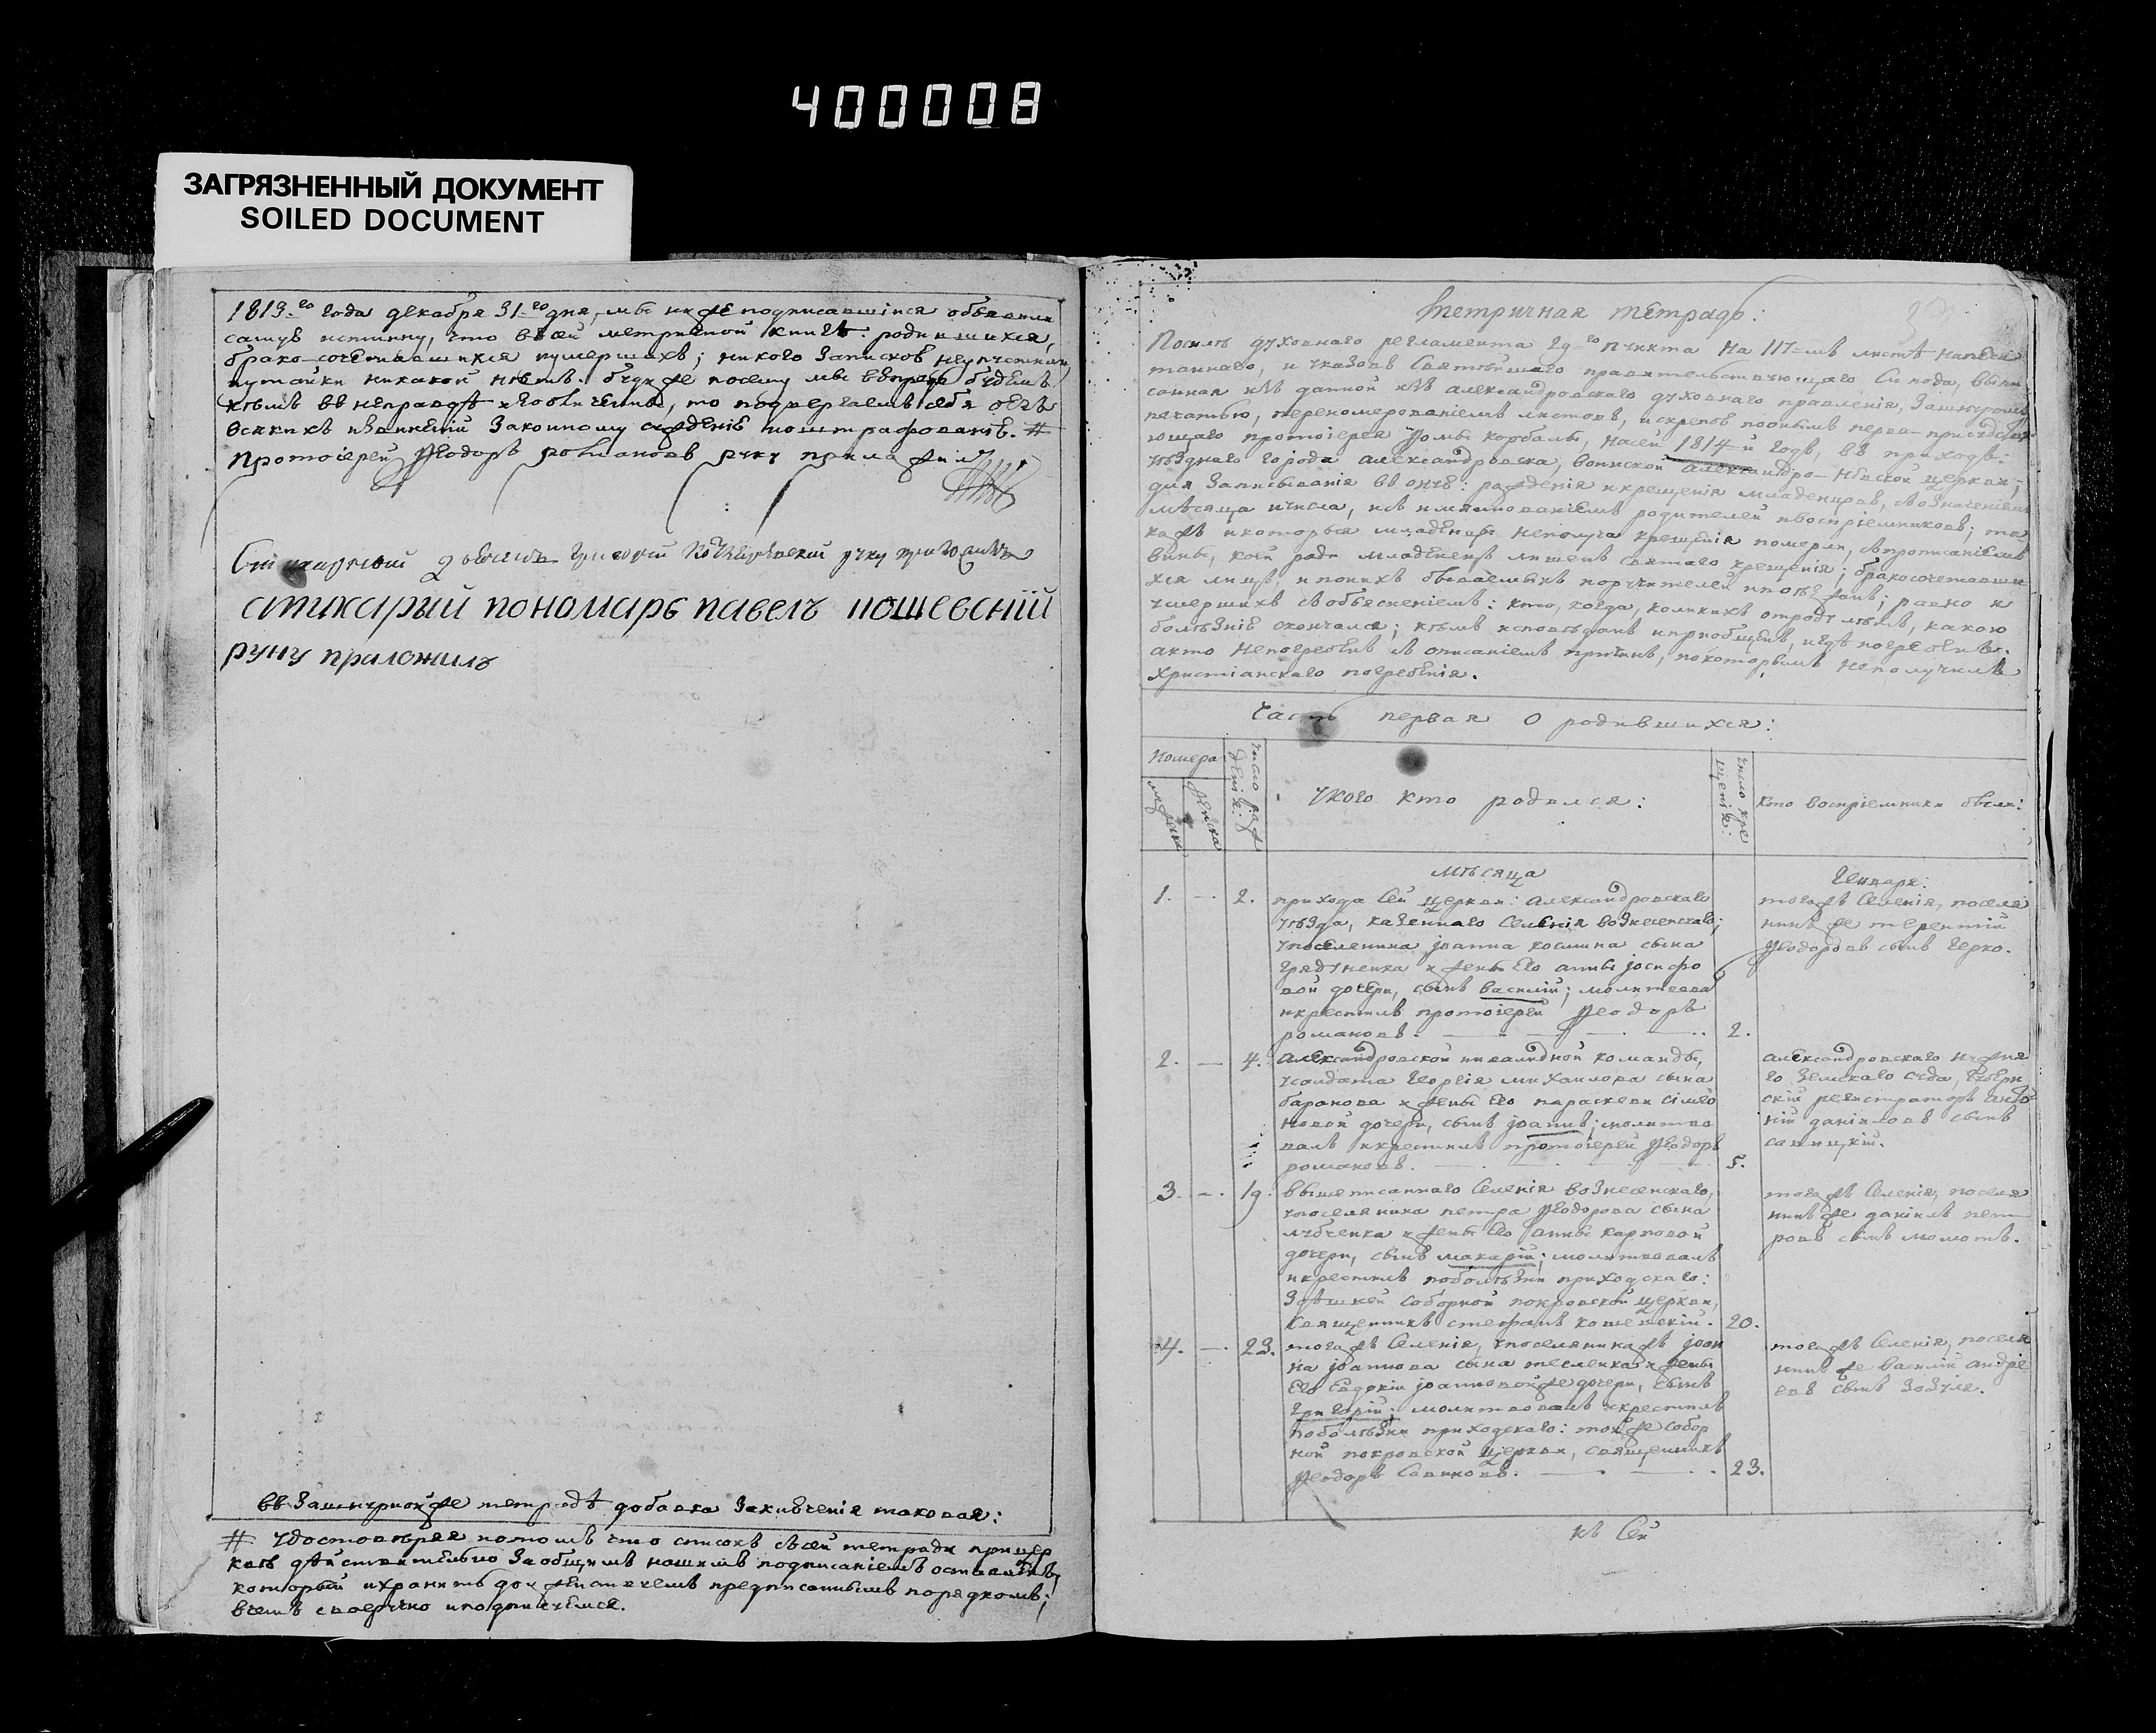 400008
ЗАГРЯЗНЕННЫЙ ДОКУМЕНТ
SOILED DOCUMENT
1813-го года декабря 31-го дня, мы нижеподписавшіися объявили
самую истинну, что въ сей метричной книгѣ родившихся,
брако-сочетавшихся и умершихъ; никого записков не упустили
и утайки никакой нѣтъ. буди же посему мы в впредь будемъ
кѣмъ въ неправдѣ изобличенны, то подвергаемъ себя безъ
всякихъ извиненій законному сужденію и оштрафованію. #
Протоіерей Ѳеодоръ романовъ руку приложилъ
Стихарный Григорій руку приложилъ
стихарый пономарь павелъ кошевскій
руку приложилъ
въ зашнурной же тетрадѣ добавка заключенія таковая:
# удостовѣряя потомъ что списокъ съ сей тетради при цер
квѣ дѣйствительно за общимъ нашимъ подписаніемъ оставленъ,
который и хранить предписаннымъ порядкомъ;
въ чемъ своеручно и подписуемся.
Метричная тетрадь:
По силѣ духовнаго регламента 29-го пункта на 117-мъ листѣ напеча
таннаго, и указовъ Святѣйшаго правительствующаго Синода, выпи
санная изъ данной изъ александровскаго духовнаго правленія, за шнуромъ
печатью, перенумерованіемъ листовъ, и скрепою перво-присудству
ющаго протоіерея Ѳомы корбалы, на сей 1814-й годъ, въ приходѣ:
уѣзднаго города александровска, воинской александро-Невской церкви;
для записыванія въ онѣ: рожденія и крещенія младенцовъ, съ означеніемъ
мѣсяца и числа, и съ имянованіемъ родителей и воспріемниковъ; та
кожъ и которыя младенцы неполуча крещенія померли, съ прописаніемъ
вины, коей ради младенецъ лишенъ святаго крещенія; бракосочетавши
хся лицъ, и по нихъ бываемыхъ поручителей и поѣзжанъ; равно и
умершихъ съ объясненіемъ: кто, когда, коликихъ отроду лѣтъ, какою
болѣзнію скончался; кѣмъ исповѣданъ и пріобщенъ, и гдѣ погребенъ.
а кто непогребенъ съ описаніемъ причинъ, по которымъ неполучилъ
христіанскаго погребенія.
Часть первая О родившихся:
Номера
мужеска
женска
число рож
денія:
У кого кто родился:
число кре
щенія:
Кто воспріемники были:
мѣсяца
Генваря:
1. — 2. прихода сей церкви: александровскаго
уѣзда, казеннаго селенія вознесенскаго;
у поселянина іоанна космина сына
грядуненка и жены его анны іосифо
вой дочери, сынъ василій; молитвовалъ
и крестилъ протоіерей Ѳеодоръ
романовъ. 2.
тогожъ селенія, поселя
нинъ же терентій
Ѳеодоровъ сынъ Герко.
2. — 4. александровской инвалидной команды,
у солдата Георгія михаилова сына
баранова и жены его параскеви сімео
новой дочери, сынъ іоаннъ; молитво
валъ и крестилъ протоіерей Ѳеодоръ
романовъ. 5.
александровскаго нижня
го земскаго суда, губерн
скій регистраторъ анто
ній даніиловъ сынъ
савицкій.
3. — 19. вышеписаннаго селенія вознесенскаго,
у поселянина петра Ѳеодорова сына
лубченка и жены его анны карповой
дочери, сынъ макарій; молитвовалъ
и крестилъ по болѣзни приходскаго:
здѣшней соборной покровской церкви,
священникъ стефанъ кошевскій. 20.
тогожъ селенія, поселя
нинъ же даніилъ пет
ровъ сынъ момотъ.
4. — 23. тогожъ селенія, у поселянина жъ іоан
на іоаннова сына тесленка и жены
его Евдокіи іоанновой же дочери, сынъ
Григорій; молитвовалъ и крестилъ
по болѣзни приходскаго: той же собор
ной покровской церкви, священникъ
Ѳеодоръ Савиновъ. 23.
тогожъ селенія, поселя
нинъ же василій андрѣ
евъ сынъ зозуля.
къ сей